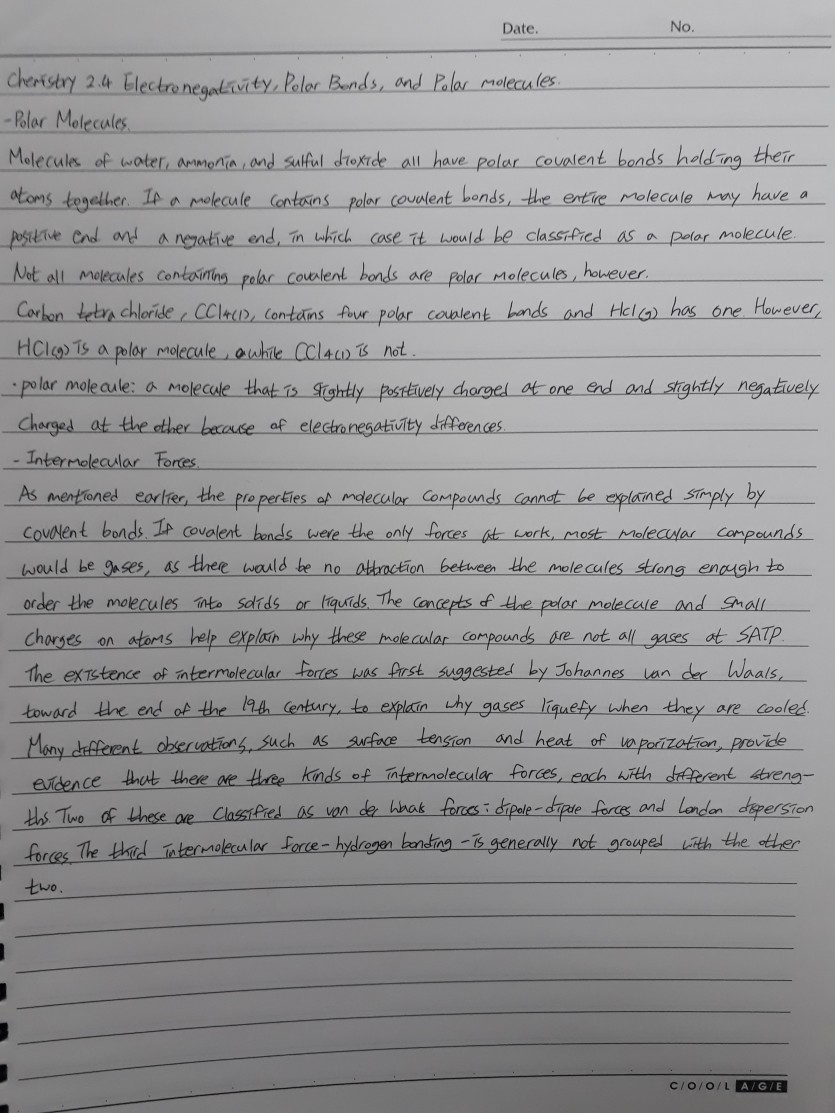 Date. No.
Chemistry 2.4 Electronegativity, Polar Bonds, and Polar molecules.
- Polar Molecules.
Molecules of water, ammonia, and sulful dioxide all have polar covalent bonds holding their
atoms together. If a molecule contains polar covalent bonds, the entire molecule may have a
positive end and a negative end, in which case it would be classified as a polar molecule.
Not all molecules containing polar covalent bonds are polar molecules, however.
Carbon tetrachloride, CCl4(l), contains four polar covalent bonds and Hcl(g) has one. However,
HCl(g) is a polar molecule, while CCl4(l) is not.
· polar molecule: a molecule that is slightly positively charged at one end and slightly negatively
charged at the other because of electronegativity differences.
- Intermolecular Forces.
As mentioned earlier, the properties of molecular compounds cannot be explained simply by
covalent bonds. If covalent bonds were the only forces at work, most molecular compounds
would be gases, as there would be no attraction between the molecules strong enough to
order the molecules into solids or liquids. The concepts of the polar molecule and small
charges on atoms help explain why these molecular compounds are not all gases at SATP.
The existence of intermolecular forces was first suggested by Johannes van der Waals,
toward the end of the 19th century, to explain why gases liquefy when they are cooled.
Many different observations, such as surface tension and heat of vaporization, provide
evidence that there are three kinds of intermolecular forces, each with different streng-
ths. Two of these are classified as van der Waals forces: dipole-dipole forces and London dispersion
forces. The third intermolecular force - hydrogen bonding - is generally not grouped with the other
two.
C/O/O/L A/G/E